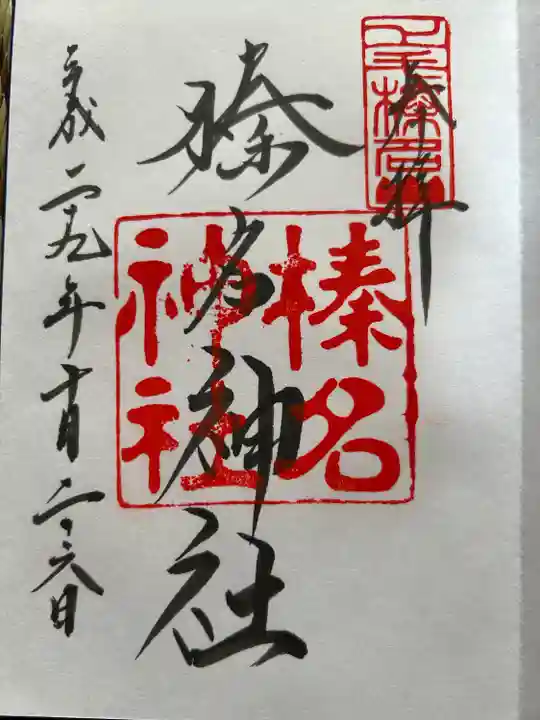 奉拝
榛名神社
榛名神社
平成二十九年十月二十六日